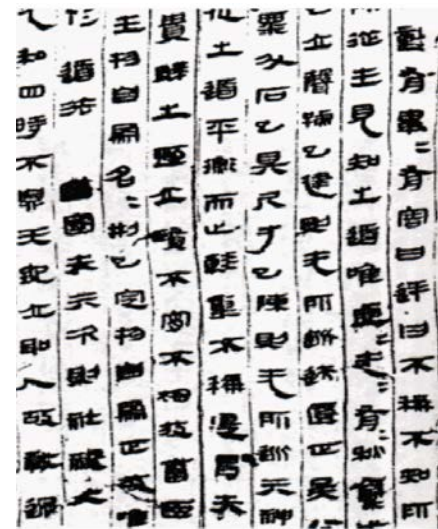 動有事=有害曰逆曰不稱不知所
所從生見知之道唯虛=无=有=秋稾
已立聲號已建則无所逃迹匿正矣
粟斗石已具尺寸已陳則无所逃其神
化之道平衡而止輕重不稱是胃失
貴賤之恒立賢不宵不相放畜臣
生物自為名=刑已定物自為正故唯
刑 道法 ■國失其次則社稷大
无私四時不息天地立耴人故載過